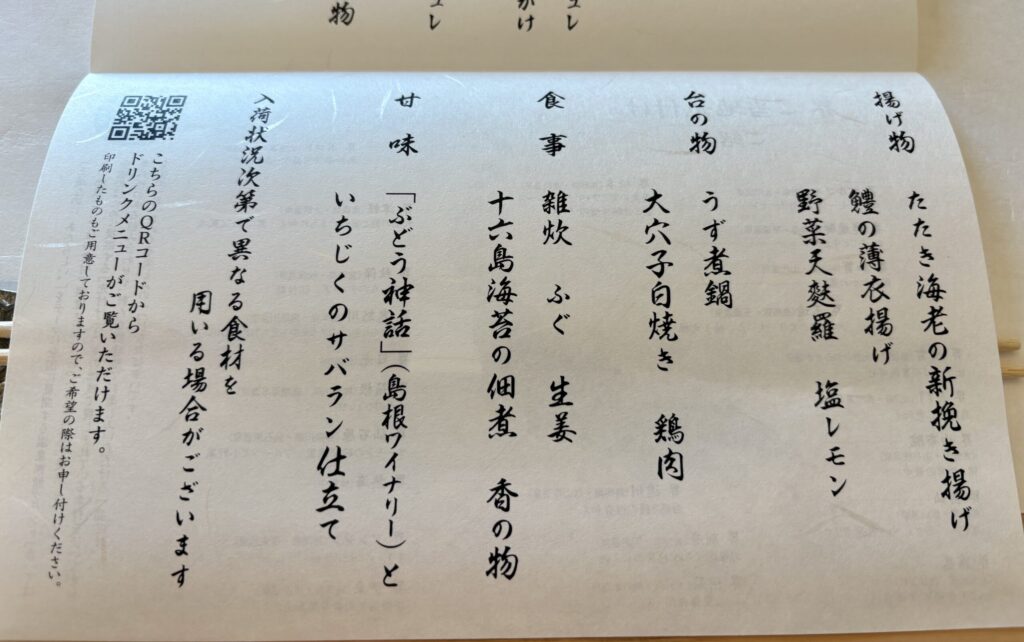 揚げ物
たたき海老の新挽き揚げ
鱧の薄衣揚げ
野菜天麩羅　塩レモン
台の物
うず煮鍋
大穴子白焼き　鶏肉
食事
雑炊　ふぐ　生姜
十六島海苔の佃煮　香の物
甘味
「ぶどう神話」（島根ワイナリー）と
いちじくのサバラン仕立て
入荷状況次第で異なる食材を
用いる場合がございます
こちらのQRコードから
ドリンクメニューがご覧いただけます。
印刷したものもご用意しておりますので、ご希望の際はお申し付けください。